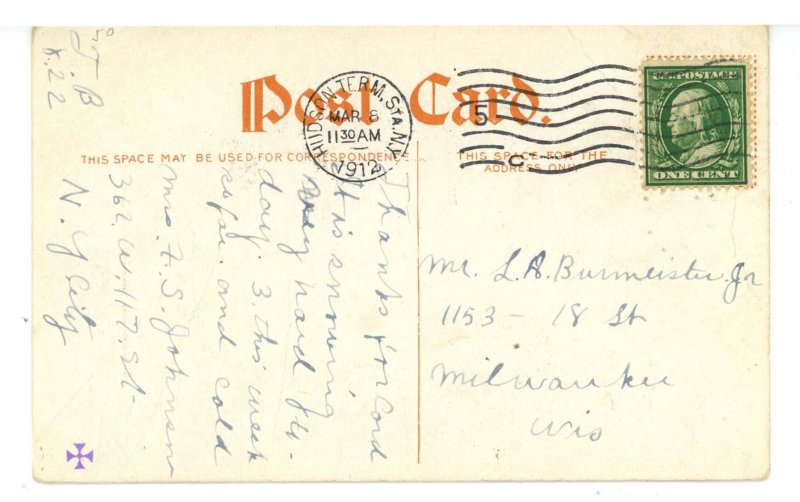 Post Card.
THIS SPACE MAY BE USED FOR CORRESPONDENCE
THIS SPACE FOR THE
ADDRESS ONLY
HUDSON TERM. STA. N.Y.
MAR 8
11 30 AM
1912
5
C
U.S. POSTAGE
ONE CENT
J B
X.22
Thanks for Card
It is snowing
very hard
day. 3. this week
so far and cold
Mrs. F. S. Johnson
362. W. 117. St.
N. Y City
Mr. L.A. Burmeister Jr
1153 - 18 St
Milwaukee
Wis